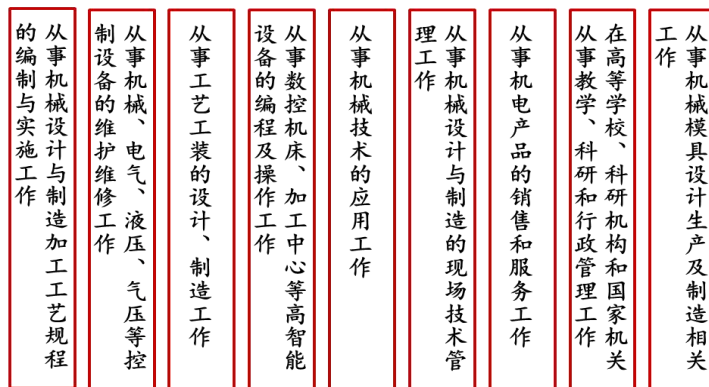 从事机械模具设计生产及制造相关
工作
在高等学校、科研机构和国家机关
从事教学、科研和行政管理工作
从事机电产品的销售和服务工作
从事机械设计与制造的现场技术管
理工作
从事机械技术的应用工作
从事数控机床、加工中心等高智能
设备的编程及操作工作
从事工艺工装的设计、制造工作
从事机械、电气、液压、气压等控
制设备的维护维修工作
从事机械设计与制造加工工艺规程
的编制与实施工作